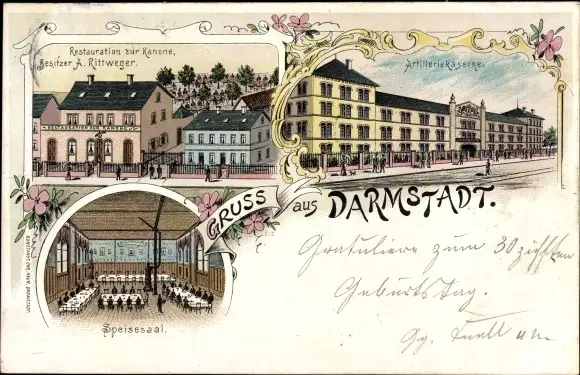 Restauration zur Kanone,
Besitzer A. Rittweger.
Artilleriekaserne.
RESTAURATION ZUR KANONE
GRUSS aus DARMSTADT.
Speisesaal.
Gratuliere zum 30 zichsten
Geburtstag.